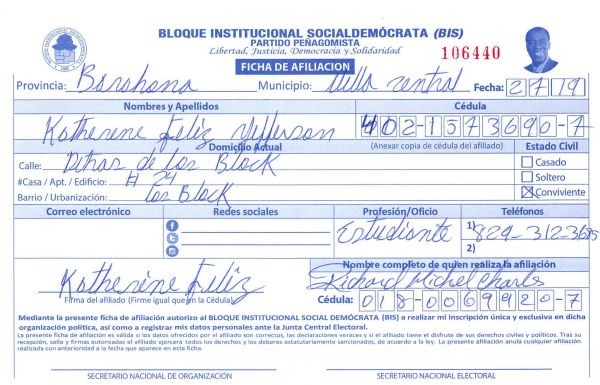 BLOQUE INSTITUCIONAL SOCIALDEMÓCRATA (BIS)
PARTIDO PEÑAGOMISTA
Libertad, Justicia, Democracia y Solidaridad
106440
FICHA DE AFILIACION
Provincia: Barahona Municipio: Villa Central Fecha: 2/7/19
Nombres y Apellidos Cédula
Katherene Feliz Yefferson 402-1573690-7
Domicilio Actual (Anexar copia de cédula del afiliado) Estado Civil
Calle: Detras de los Block Casado
#Casa / Apt. / Edificio: # 24 Soltero
Barrio / Urbanización: los Block Conviviente
Correo electrónico Redes sociales Profesión/Oficio Teléfonos
Estudiante 1) 829-312-3685
2)
Nombre completo de quien realiza la afiliación
Katherène Feliz Richard Michel Charles
Firma del afiliado (Firme igual que en la Cédula) Cédula: 018-0069920-7
Mediante la presente ficha de afiliación autorizo al BLOQUE INSTITUCIONAL SOCIAL DEMÓCRATA (BIS) a realizar mi inscripción única y exclusiva en dicha
organización política, así como a registrar mis datos personales ante la Junta Central Electoral.
La presente ficha de afiliación es válida si los datos ofrecidos por el afiliado son correctos, las declaraciones veraces y si el afiliado tiene el disfrute de sus derechos civiles y políticos. Tras su
recepción, sello y firmas autorizadas el afiliado ejercerá todos los derechos y los deberes estatutariamente sancionados, de acuerdo a la ley. La presente afiliación anula cualquier afiliación
realizada con anterioridad a la fecha que aparece en esta ficha.
SECRETARIO NACIONAL DE ORGANIZACIÓN SECRETARIO NACIONAL ELECTORAL